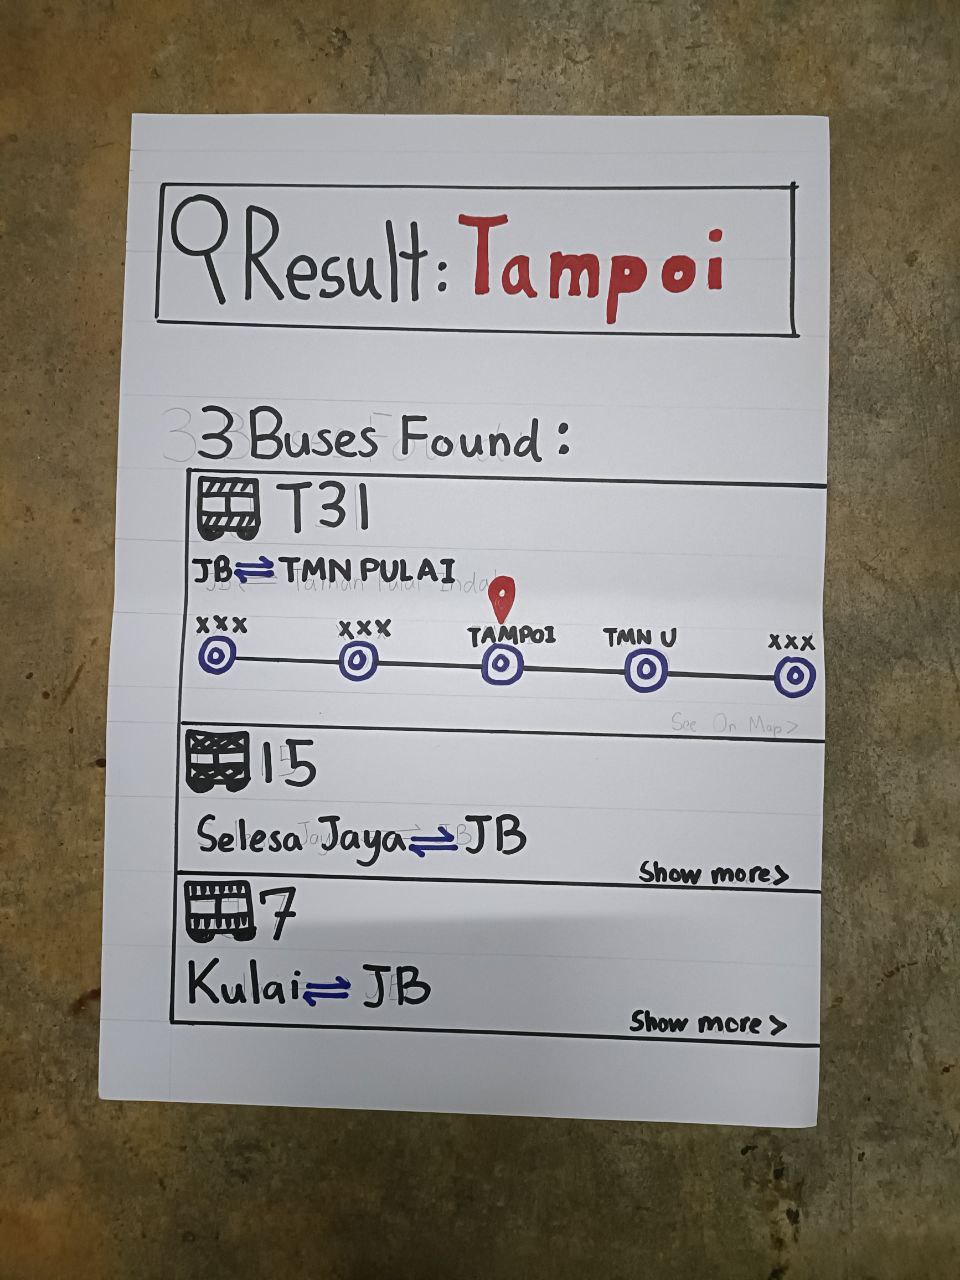 Result: Tampoi
3 Buses Found:
T31
JB ⇌ TMN PULAI
xxx xxx TAMPOI TMN U xxx
See On Map>
15
Selesa Jaya ⇌ JB
Show more>
7
Kulai ⇌ JB
Show more>